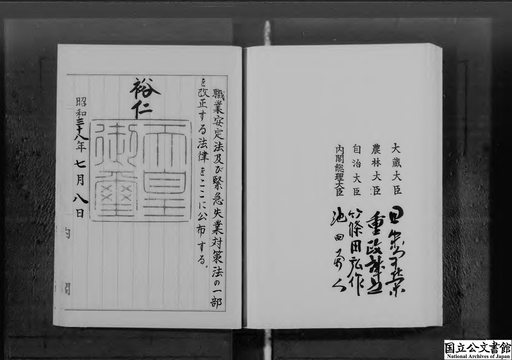 職業安定法及び緊急失業対策法の一部
を改正する法律をここに公布する。
裕仁
天皇
御璽
昭和三十八年七月八日
内閣
大蔵大臣
農林大臣 重政誠之
自治大臣 篠田弘作
内閣総理大臣 池田勇人
国立公文書館
National Archives of Japan